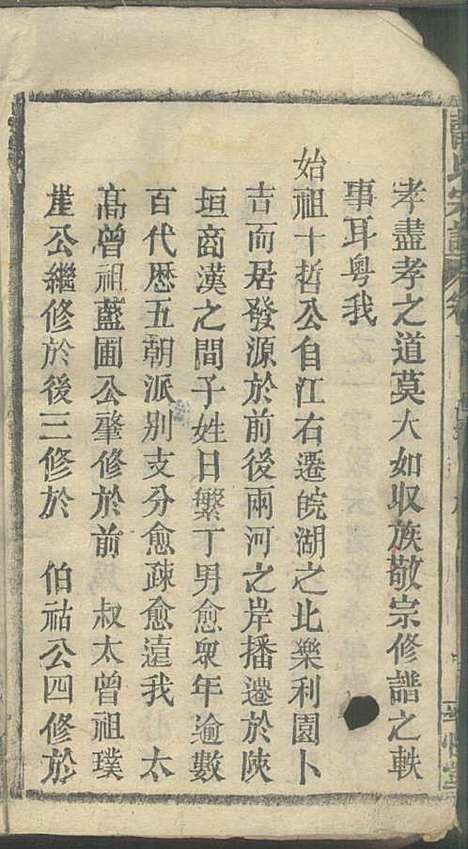 孝盡孝之道莫大如収族敬宗修譜之軼
事耳粤我
始祖十哲公自江右遷皖湖之北樂利園卜
吉而居發源於前後兩河之岸播遷於陝
垣商漢之間子姓日繁丁男愈眾年逾數
百代歷五朝派別支分愈疎愈遠我 太
高曾祖藍圃公肇修於前 叔太曾祖璞
崖公繼修於後三修於 伯祜公四修於
氏宗譜 卷